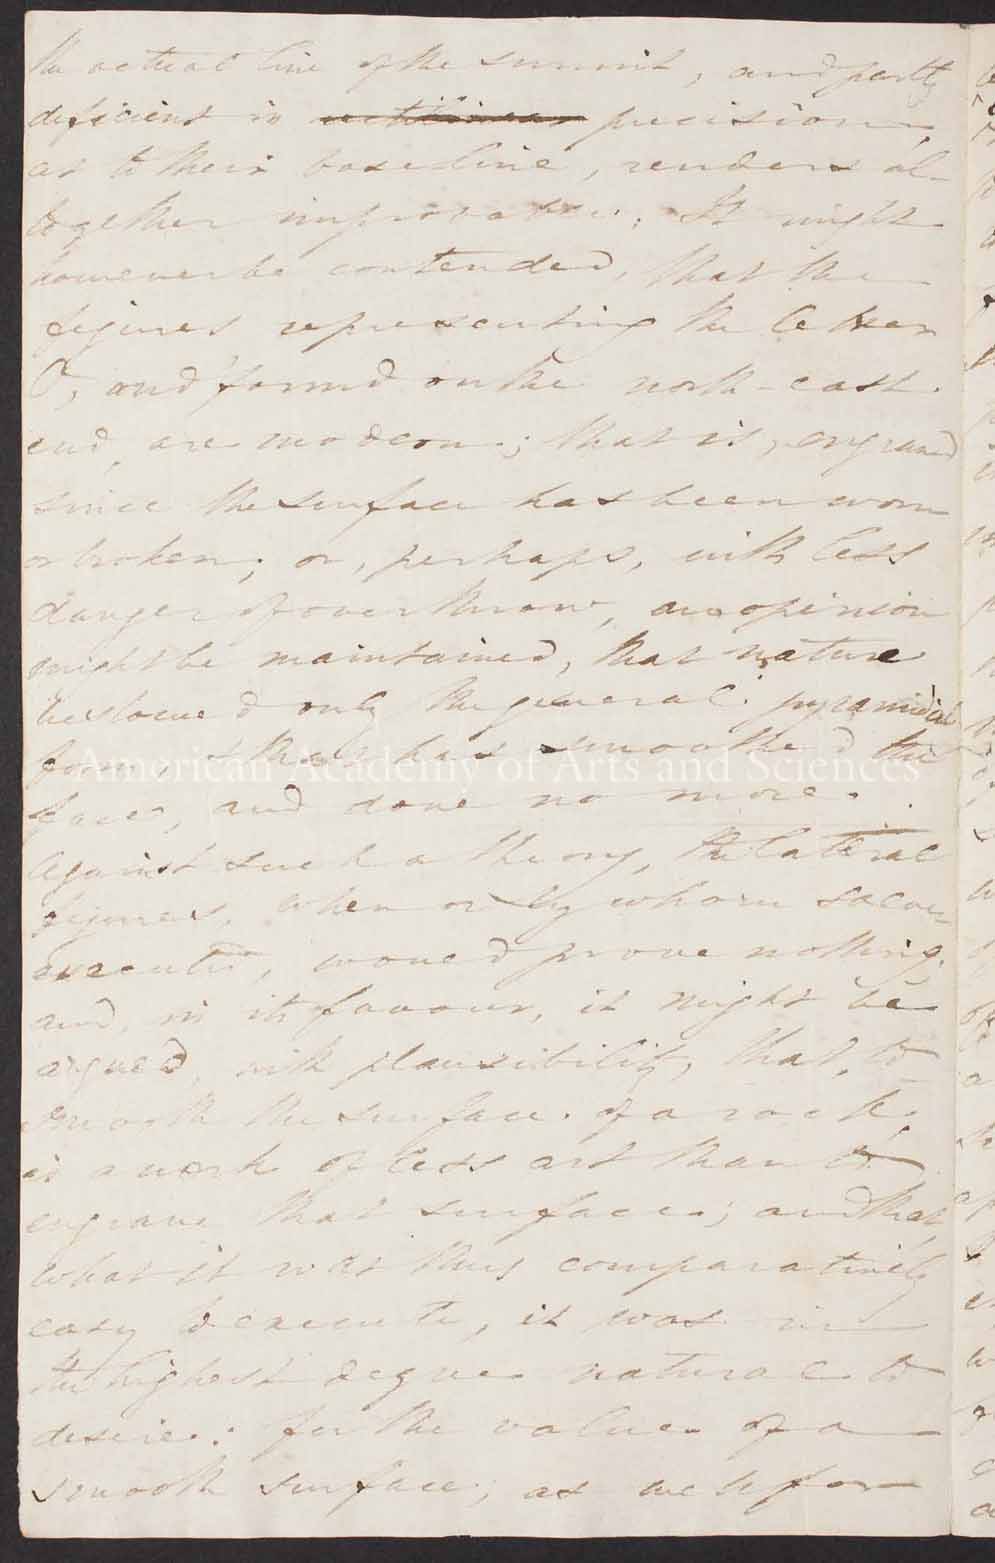 the actual line of the summit, and partly
deficient in rectilinear precision
as to their base line, renders al-
together improbable. It might
however be contended, that the
figures representing the letter
O, and found on the north-east
end, are modern; that is, engraved
since the surface has been worn
or broken; or, perhaps, with less
danger of overthrow, an opinion
might be maintained, that nature
bestowed only the general pyramidal
form, & that has smoothed the
face, and done no more.
Against such a theory, the lateral
figures, when or by whom soever
executed, would prove nothing;
and, in its favour, it might be
argued, with plausibility, that, to
smooth the surface of a rock,
is a work of less art than to
engrave that surface; and that
what it was thus comparatively
easy to execute, it was in
the highest degree natural to
desire: for the value of a
smooth surface; as well for
American Academy of Arts and Sciences